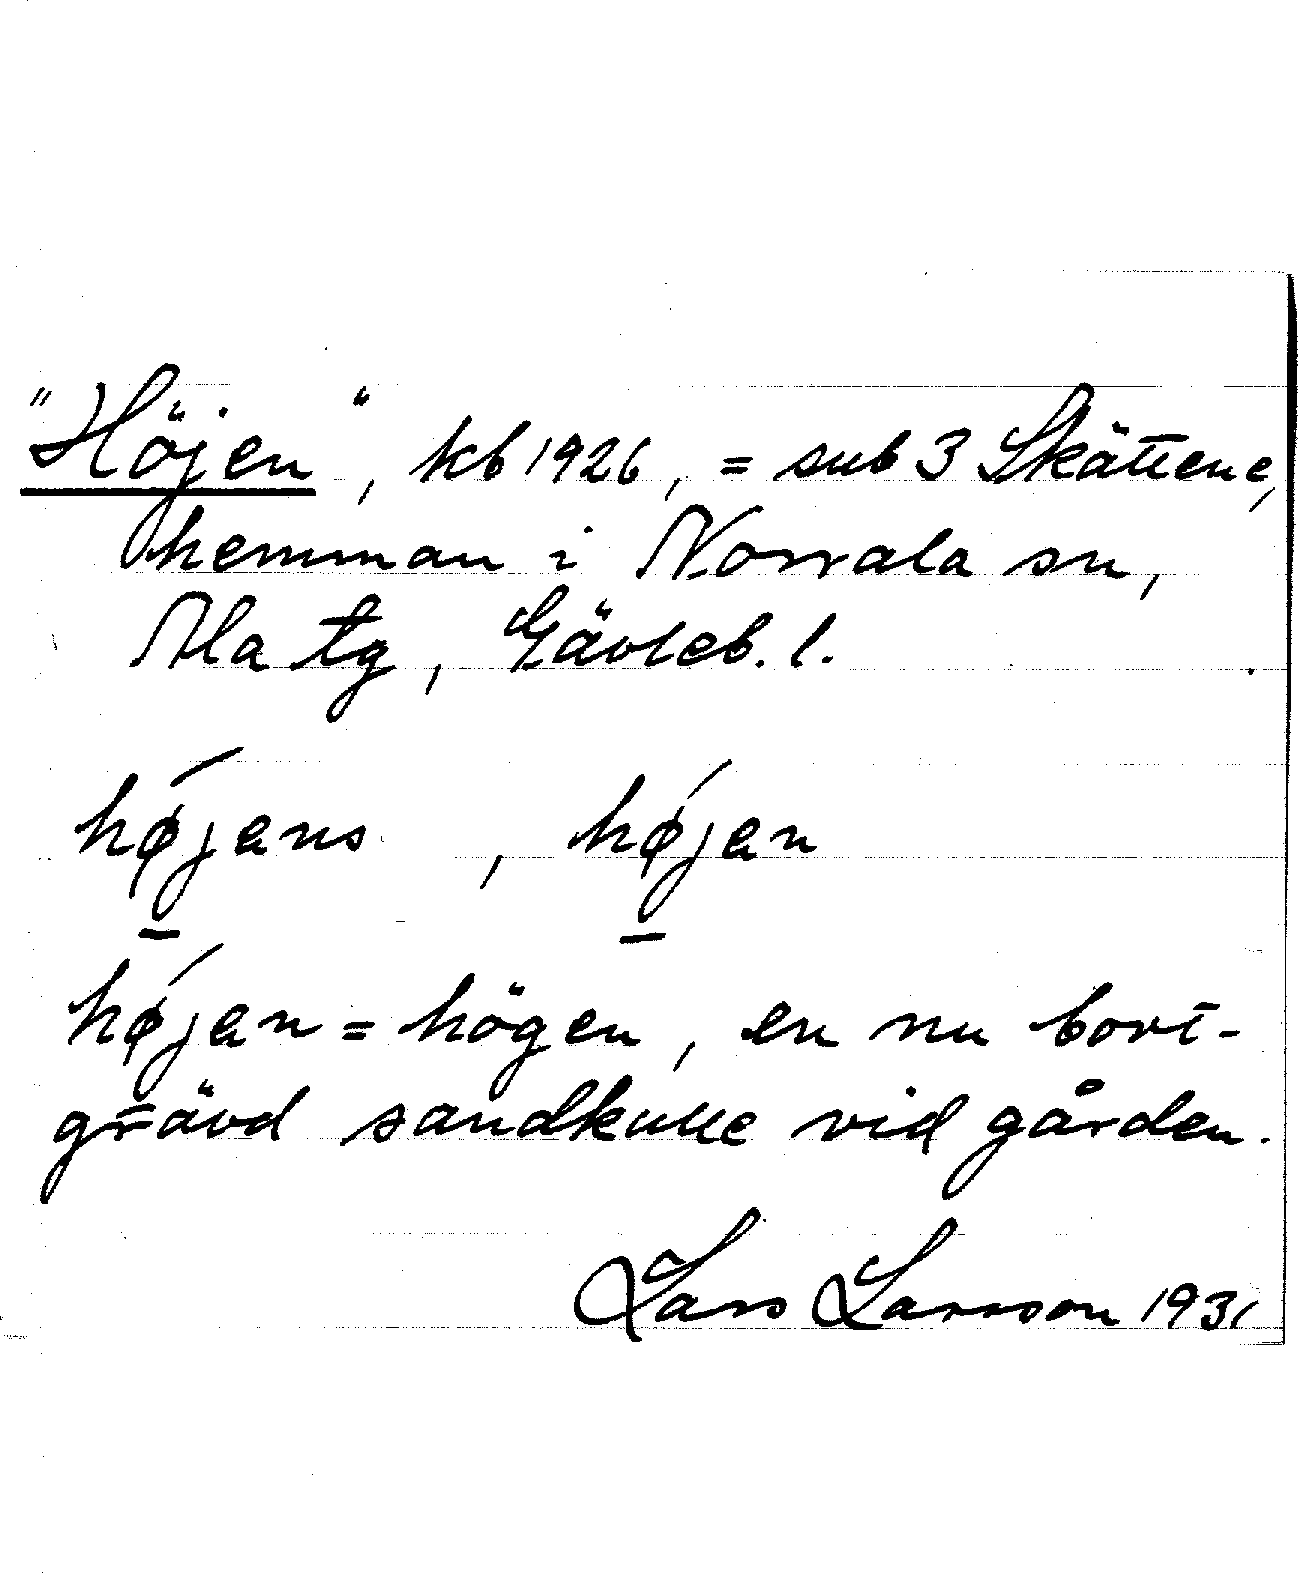 "Höjen", kb 1926, = sub 3 Skättene,
hemman i Norrala sn,
Ala tg, Gävleb. l.
hǿjans, hǿjan
hǿjan = högen, en nu bort-
grävd sandkulle vid gården.
Lars Larsson 1931